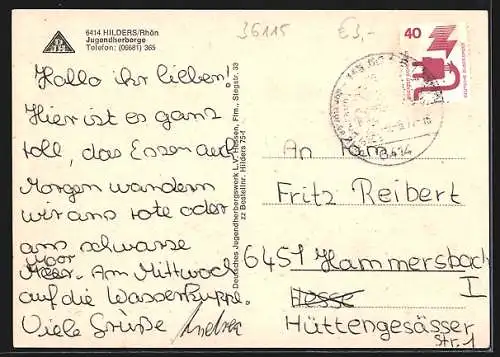 6414 HILDERS/Rhön
Jugendherberge
Telefon: (06681) 365
36115
€3,-
40
DEUTSCHE BUNDESPOST
Hallo ihr lieben!
Hier ist es ganz
toll, das Essen auch
Morgen wandern
wir ans rote oder
ans schwarze
Moor
Meer. Am Mittwoch
auf die Wasserkuppe.
Viele Grüße Andrea
Deutsches Jugendherbergswerk L.V. Hessen, Ffm., Stegstr. 33
zz Bestellnr. Hilders 75-1
6414
An Fam.
Fritz Reibert
6451 Hammersbach
I
Hesse
Hüttengesässer
Str. 1